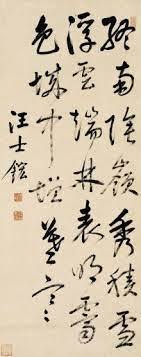 終南陰嶺秀積雪
浮雲端林表明霽
色城中增暮寒
汪士鋐